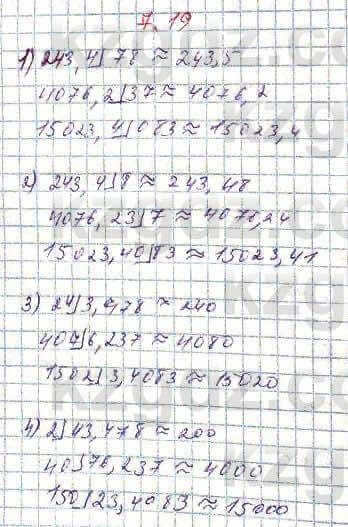 7.19
1) 243,4|78 ≈ 243,5
4076,2|37 ≈ 4076,2
15023,4|083 ≈ 15023,4
2) 243,4|8 ≈ 243,48
4076,23|7 ≈ 4076,24
15023,40|83 ≈ 15023,41
3) 24|3,478 ≈ 240
407|6,237 ≈ 4080
1502|3,4083 ≈ 15020
4) 2|43,478 ≈ 200
40|76,237 ≈ 4000
150|23,4083 ≈ 15000